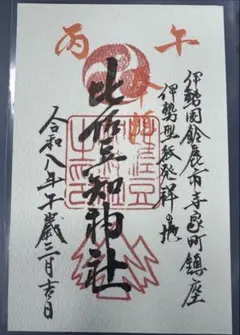 丙午
伊勢国鈴鹿市寺家町鎮座
伊勢型紙発祥の地
奉拝
比佐豆知神社
令和八年午歳三月吉日